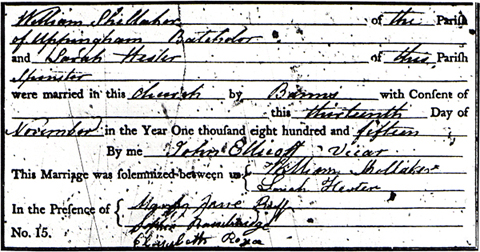 William Shellaker of this Parish
of Uppingham Batchelor
and Sarah Hester of this Parish
Spinster
were married in this church by Banns with Consent of
this thirteenth Day of
November in the Year One thousand eight hundred and fifteen
By me John Ellicott Vicar
This Marriage was solemnized between us William Shellaker
Sarah Hester
In the Presence of Jane
Elizabeth
No. 15.